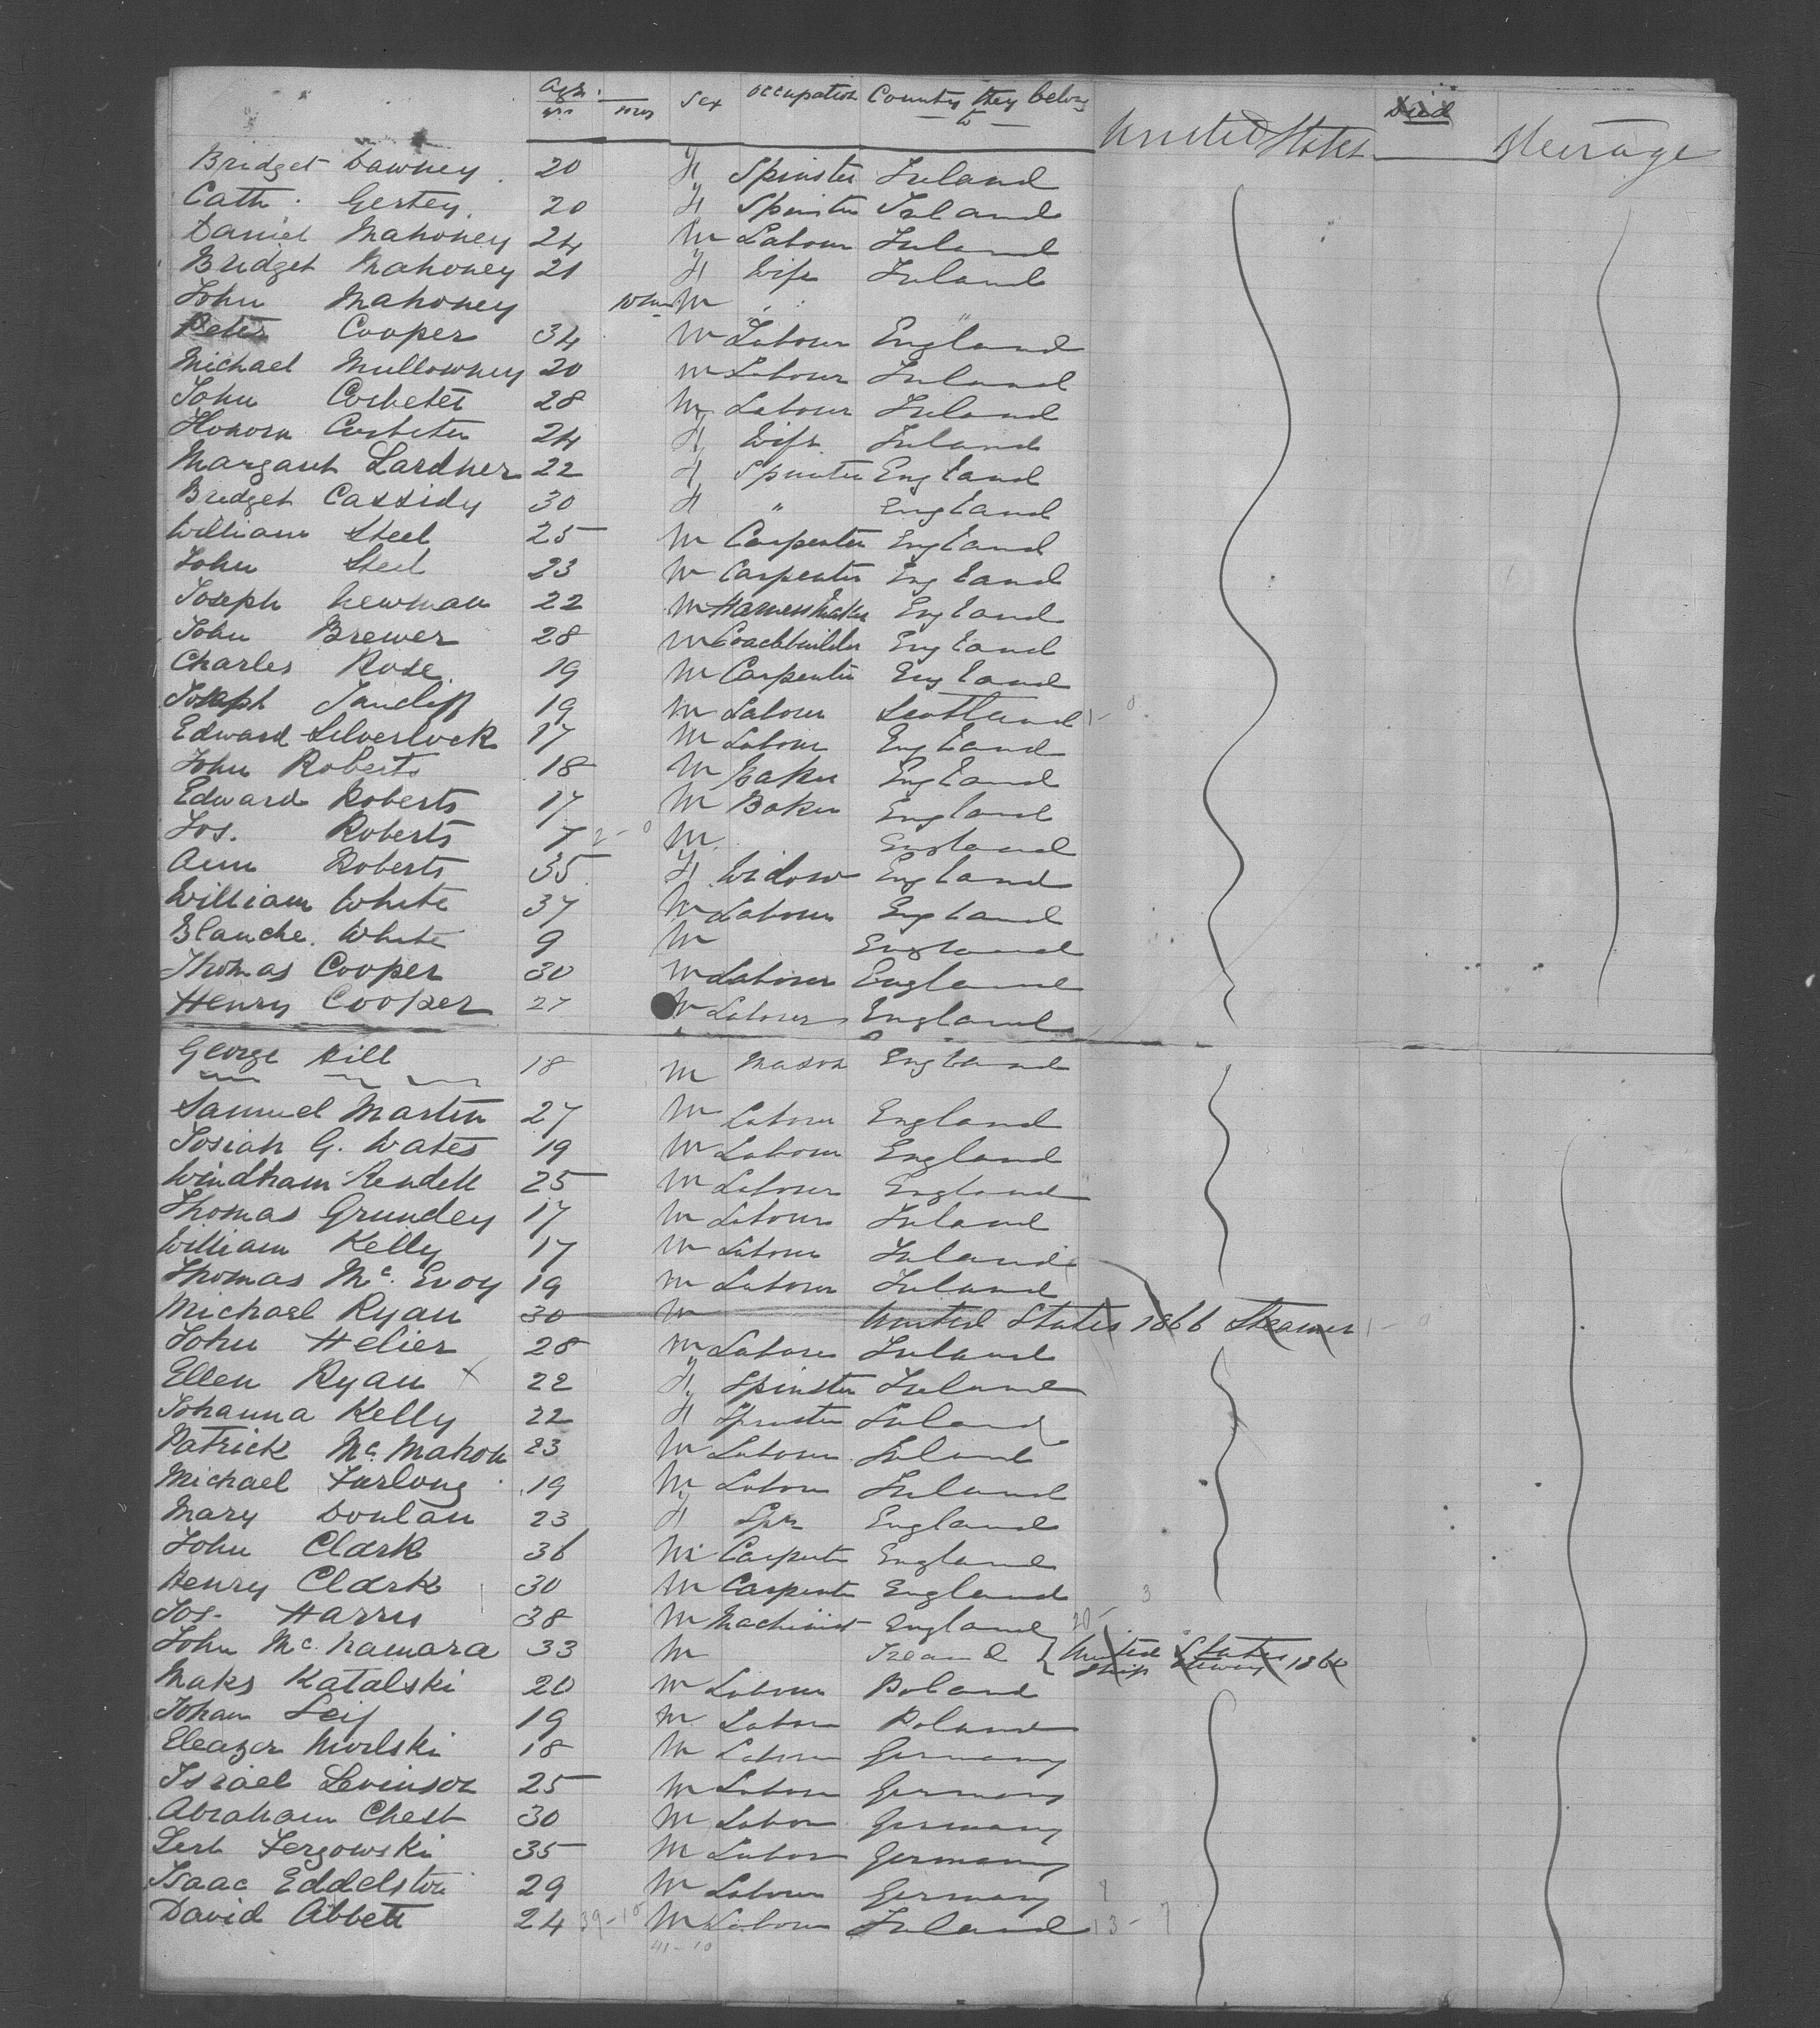 Age. Sex Occupation Country they belong
yrs mos to
United States Died Steerage
Bridget Dawney 20 F Spinster Ireland
Cath. Gertey 20 F Spinster Ireland
Daniel Mahoney 24 M Labour Ireland
Bridget Mahoney 21 F Wife Ireland
John Mahoney 10 mos M " "
Peter Cooper 34 M Labour England
Michael Mullowney 20 M Labour Ireland
John Corbeter 28 M Labour Ireland
Honora Corbeter 24 F Wife Ireland
Margaret Lardner 22 F Spinster England
Bridget Cassidy 30 F " England
William Steel 25 M Carpenter England
John Steel 23 M Carpenter England
Joseph Newman 22 M Harness Maker England
John Brewer 28 M Coachbuilder England
Charles Rose 19 M Carpenter England
Joseph 19 M Labour Scotland 1 - 0
Edward Silverlock 17 M Labour England
John Roberts 18 M Baker England
Edward Roberts 17 M Baker England
Jos. Roberts 7 2 - 0 M England
Ann Roberts 35 F Widow England
William White 37 M Labour England
Blanche White 9 M England
Thomas Cooper 30 M Labour England
Henry Cooper 27 M Labour England
George Hill 18 M Mason England
Samuel Martin 27 M Labour England
Josiah G. Wates 19 M Labour England
Windham Rendell 25 M Labour England
Thomas Grundey 17 M Labour Ireland
William Kelly 17 M Labour Ireland
Thomas Mc. Evoy 19 M Labour Ireland
Michael Ryan 30 M United States 1866 Steamer 1 - 0
John Helier 28 M Labour Ireland
Ellen Ryan x 22 F Spinster Ireland
Johanna Kelly 22 F Spinster Ireland
Patrick Mc. Mahon 23 M Labour Ireland
Michael Furlong 19 M Labour Ireland
Mary Doulan 23 F Spr England
John Clark 36 M Carpenter England
Henry Clark 30 M Carpenter England 3
Jos. Harris 38 M Machinist England 20 -
John Mc. Namara 33 M Ireand { United States
Ship 1866
Maks Katalski 20 M Labour Poland
Johan 19 M Labour Poland
Eleazer Morlski 18 M Labour Germany
Israel Levinson 25 M Labour Germany
Abraham Chest 30 M Labour Germany
35 M Labour Germany
Isaac Eddelston 29 M Labour Germany
David Abbett 24 39 - 10 M Labour Ireland 13 - 7
41 - 10